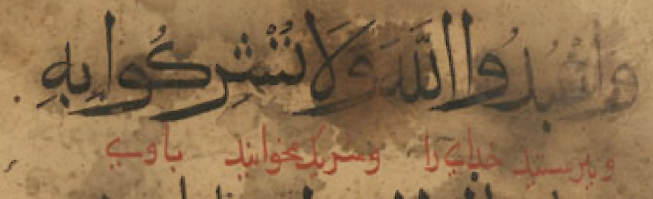 وَاعْبُدُوا اللَّهَ وَلَا تُشْرِكُوا بِهِ
وبپرستید خدای را وشریک مخوانید باوی